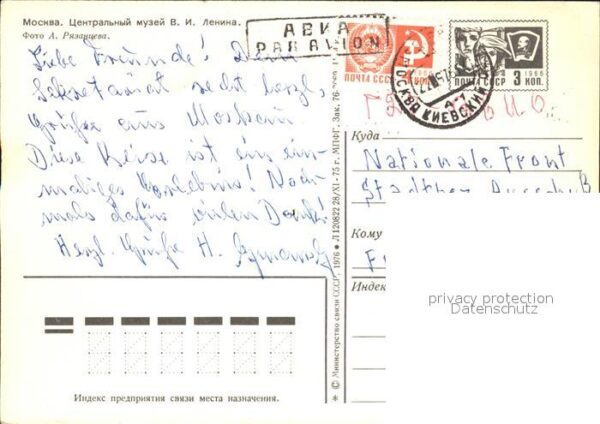 Москва. Центральный музей В. И. Ленина.
Фото А. Рязанцева.
АВИА
PAR AVION
ПОЧТА СССР
1966
3 КОП.
МОСКВА КИЕВСКИЙ
Liebe Freunde! Dem
Sekretariat recht herzl.
Grüße aus Moskau.
Diese Reise ist ein ein-
maliges Erlebnis! Noch-
mals dafür vielen Dank!
Herzl. Grüße H.
Куда
Nationale Front
Stadtbez.
Кому
F
Индекс
© Министерство связи СССР, 1976 • Л 120822 28/XI - 75 г. МПФГ. Зак. 76-
Индекс предприятия связи места назначения.
privacy protection
Datenschutz